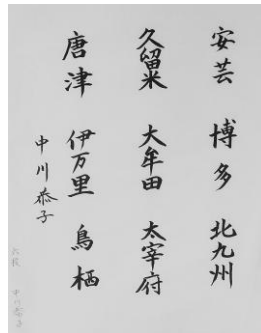 安芸 博多 北九州
久留米 大牟田 太宰府
唐津 伊万里 鳥栖
中川恭子